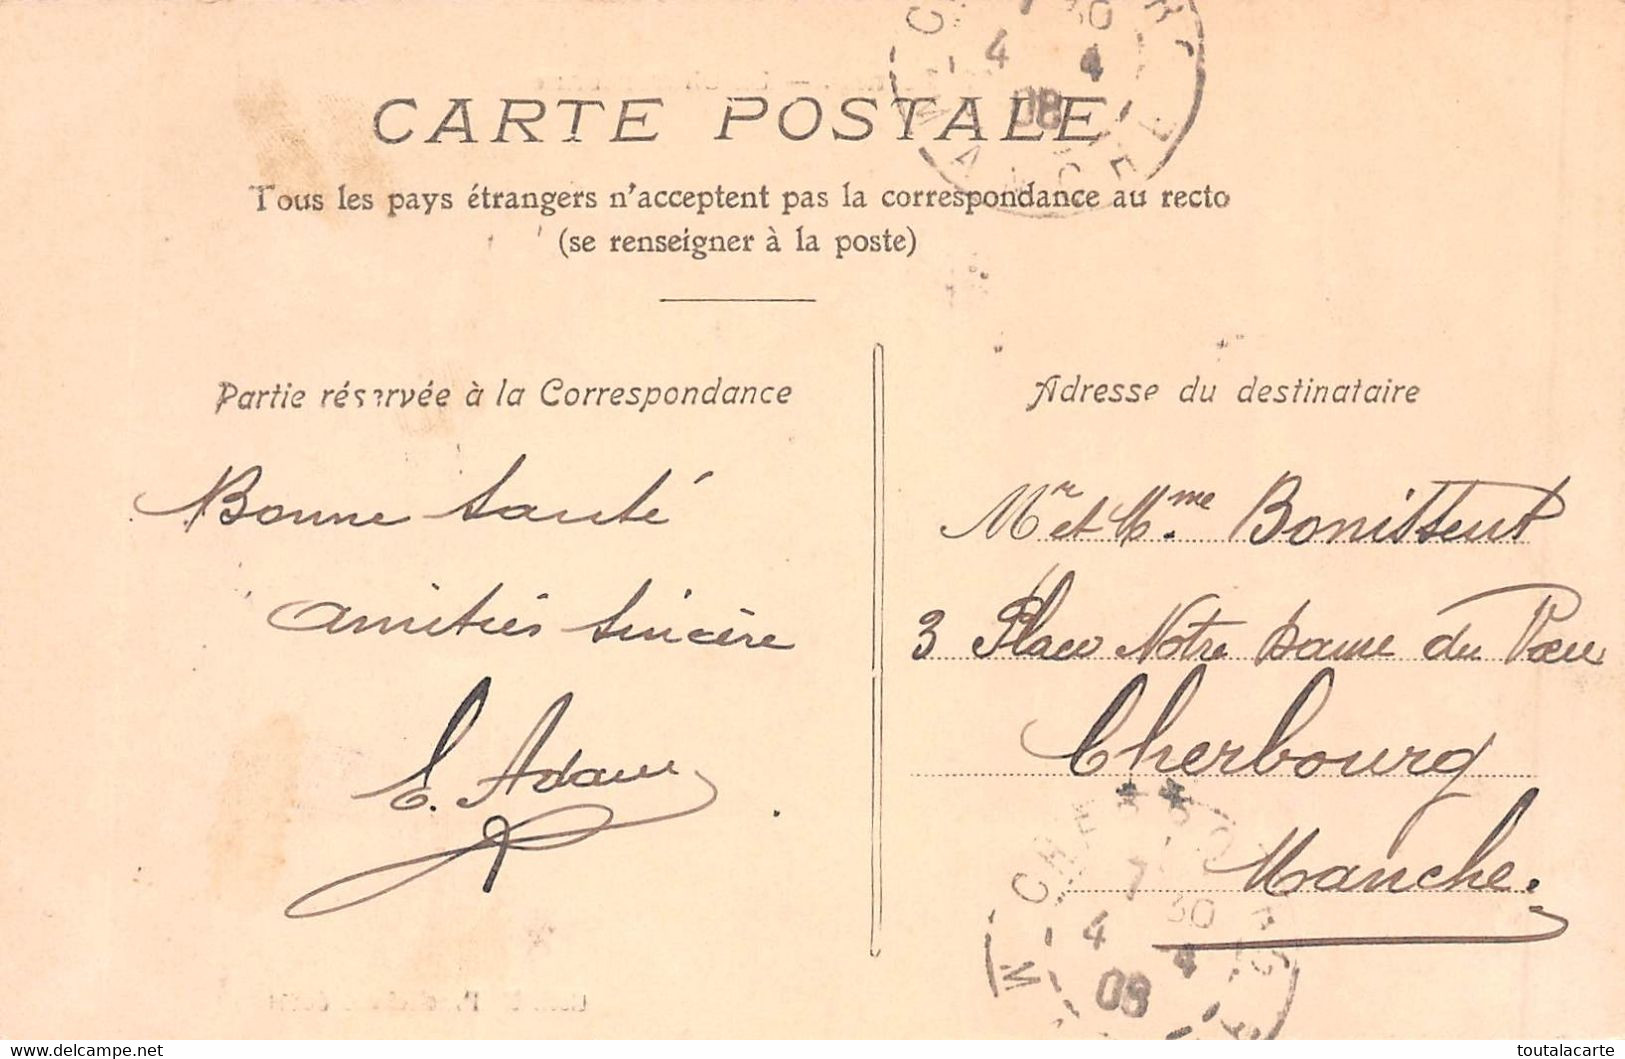 CARTE POSTALE
Tous les pays étrangers n'acceptent pas la correspondance au recto
(se renseigner à la poste)
Partie réservée à la Correspondance
Bonne Santé
amitiés Sincère
E. Adam
Adresse du destinataire
Mr et Mme Bonisseut
3 Place Notre Dame du Vœu
Cherbourg
Manche.
7 30
4 4
08
MANCHE
CHERBOURG
7 30
4 4
08
www.delcampe.net
toutalacarte